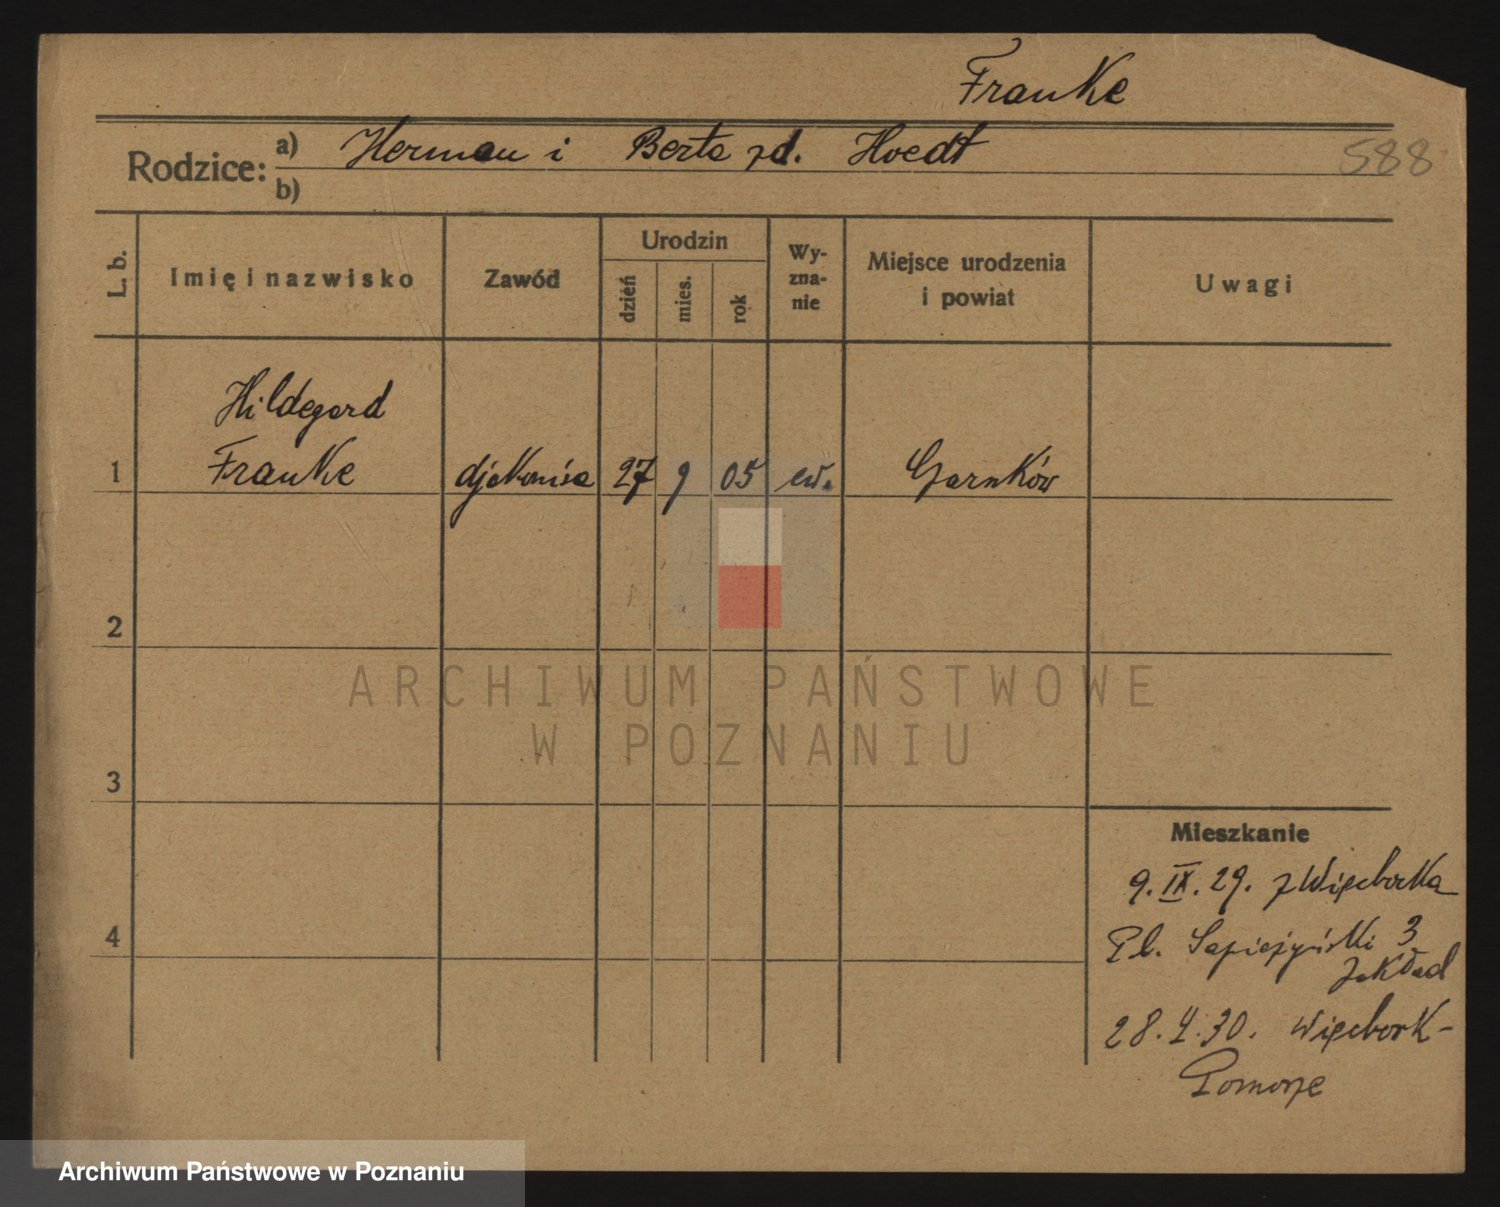 Franke
Rodzice: a) Herman i Berta zd. Hoedt
588
b)
L. b.
Imię i nazwisko
Zawód
Urodzin
dzień
mies.
rok
Wy-
zna-
nie
Miejsce urodzenia
i powiat
Uwagi
Hildegard
1 Franke djakonisa 27 9 05 ew. Garnków
2
ARCHIWUM PAŃSTWOWE
W POZNANIU
3
Mieszkanie
9. IX. 29. z Więcborka
4
Pl. Sapieżyński 3
zakład
28. 30. Więcbork-
Pomorze
Archiwum Państwowe w Poznaniu